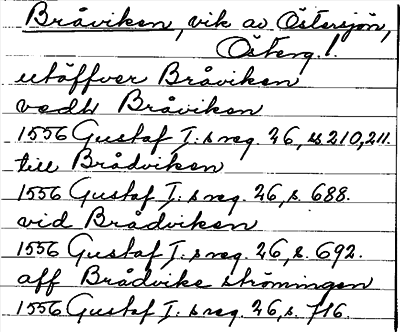 Bråviken, vik av Östersjön,
Österg.l.
utöffver Bråviken
vedh Bråviken
1556 Gustaf I:s reg. 26, ss 210, 211.
till Brådviken
1556 Gustaf I:s reg. 26, s. 688.
vid Brådviken
1556 Gustaf I:s reg. 26, s. 692.
aff Brådvike ströningen
1556 Gustaf I:s reg. 26, s. 716.